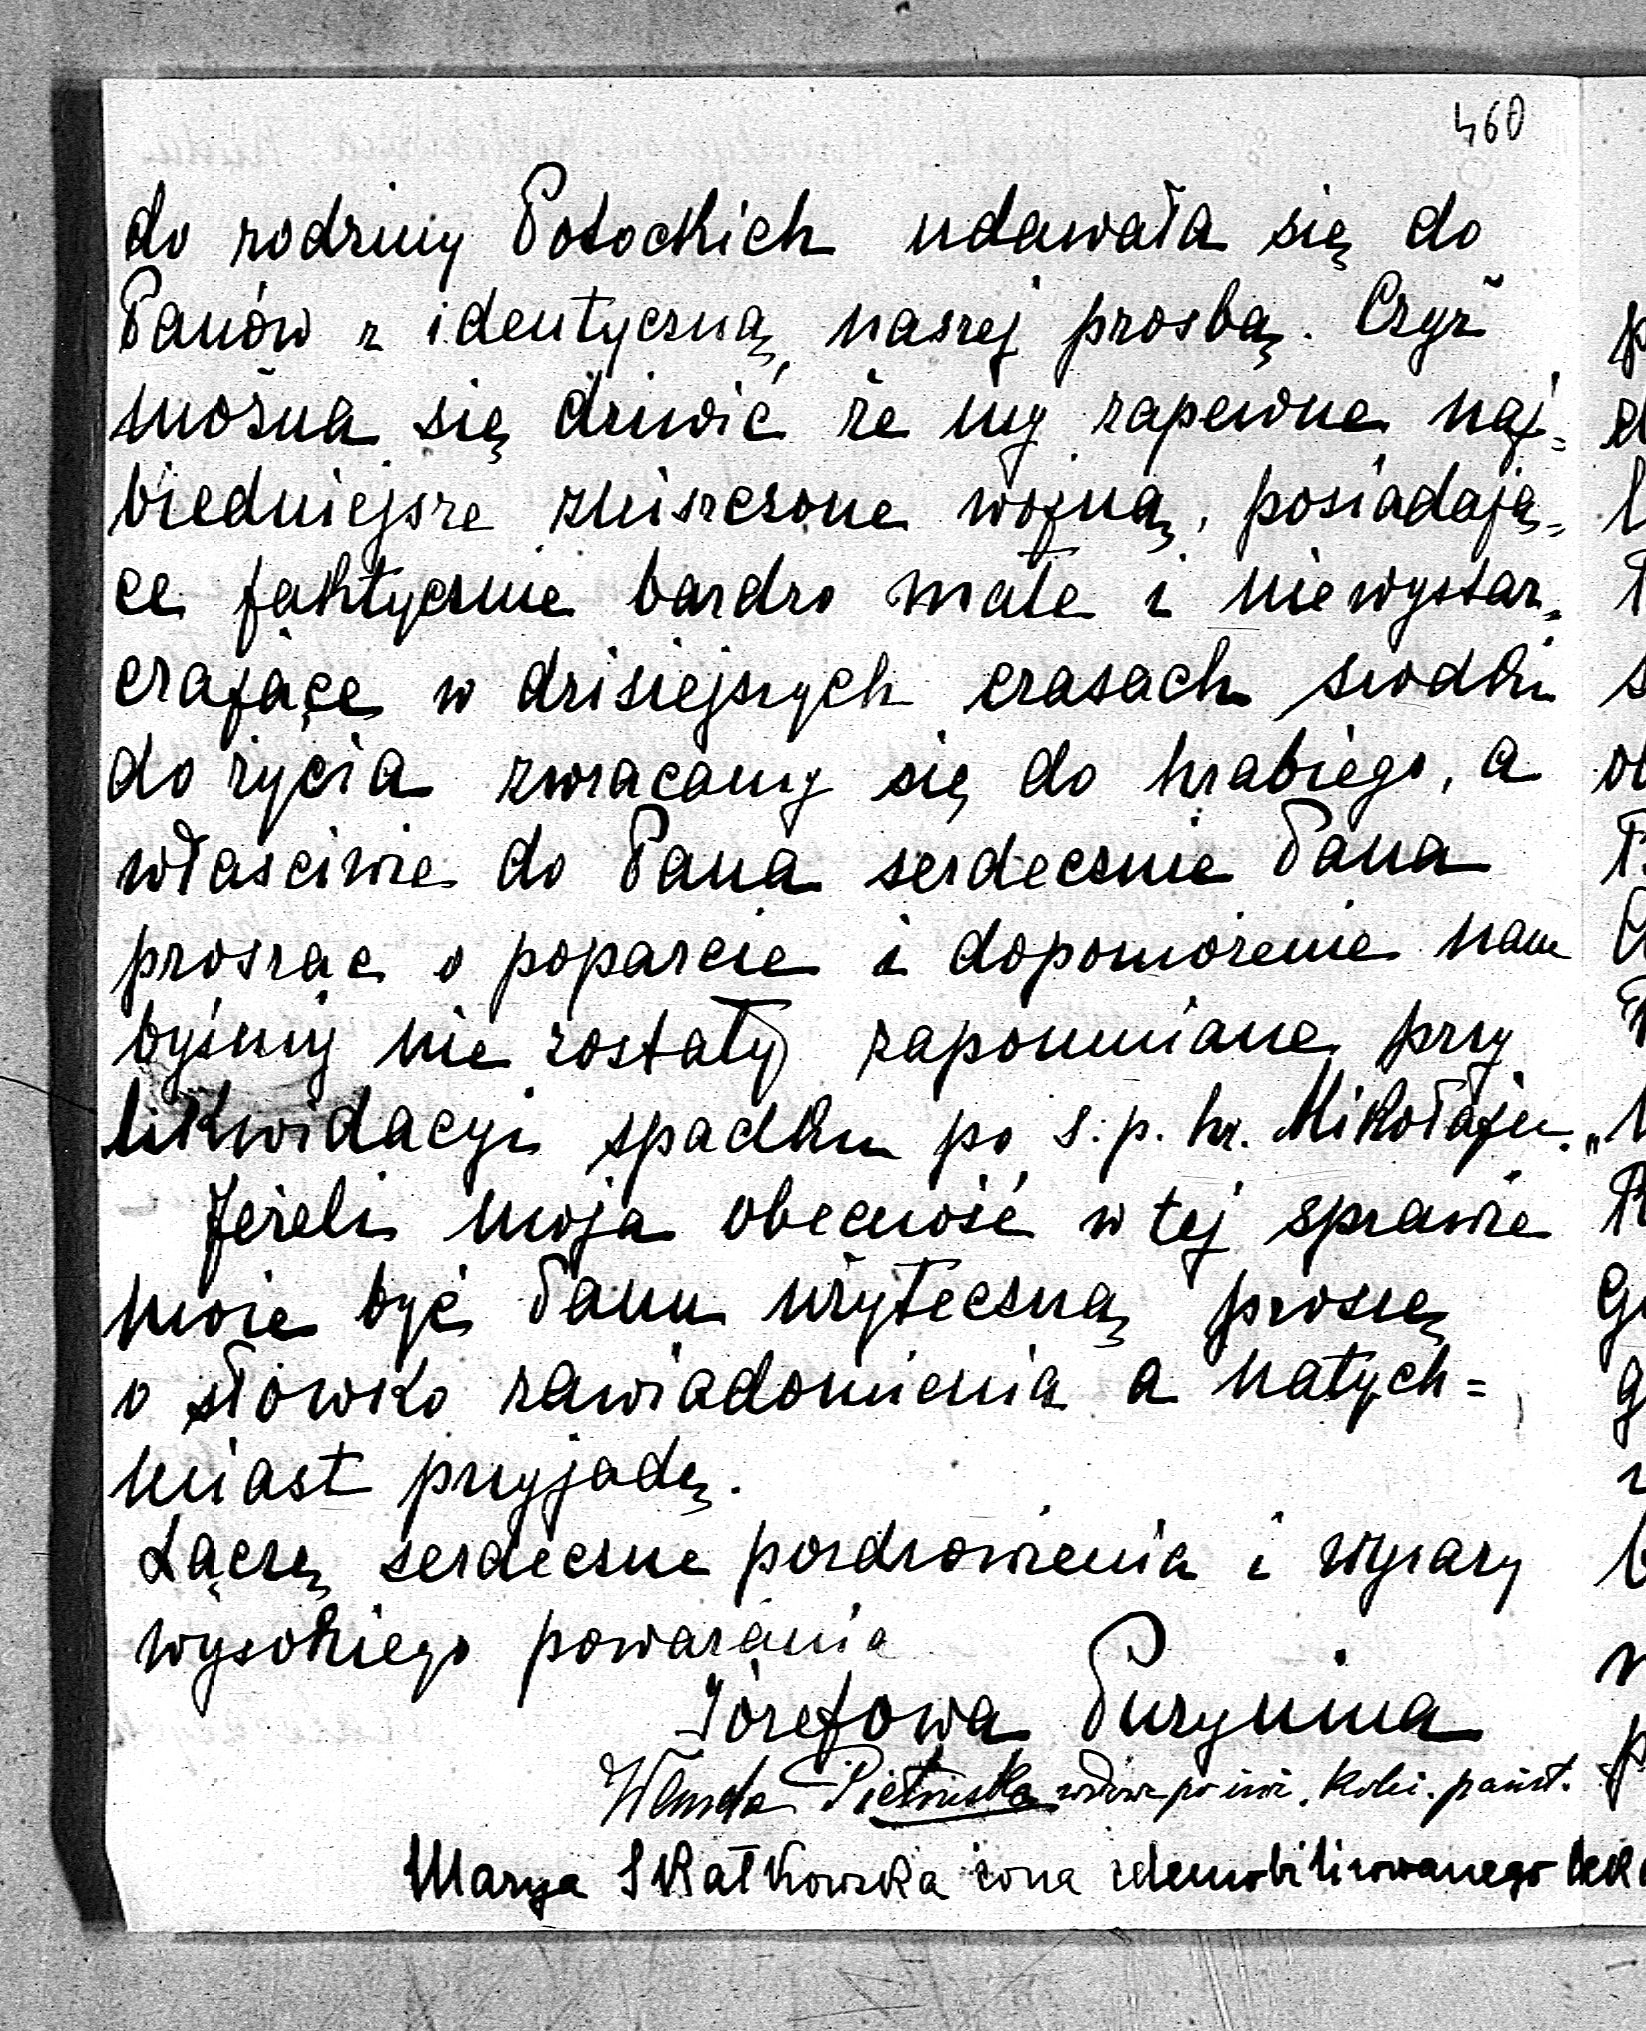 460
do rodziny Potockich udawała się do
Panów z identyczną naszej prosbą. Czyż
można się dziwić że my zapewne naj=
biedniejsze zniszczone wojną, posiadają=
ce faktycznie bardzo małe i niewystar=
czające w dzisiejszych czasach srodki
do życia zwracamy się do hrabiego, a
właściwie do Pana serdecznie Pana
prosząc o poparcie i dopomożenie nam
byśmy nie zostały zapomniane przy
likwidacyi spadku po s.p. hr. Mikołaju.
Jeżeli moja obecność w tej sprawie
może być Panu użyteczną proszę
o słówko zawiadomienia a natych=
miast przyjadę.
Łączę serdeczne pozdrowienia i wyrazy
wysokiego poważania
Józefowa Puzynina
Wanda wdowa po inż. kolei. państ.
Marya Skałkowska żona zdemobilizowanego